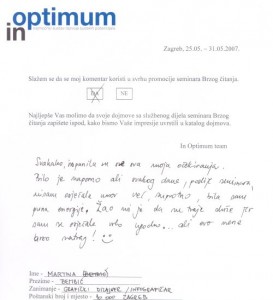 in optimum
Zagreb, 25.05. – 31.05.2007.
Slažem se da se moj komentar koristi u svrhu promocije seminara Brzog čitanja.
DA NE
Najljepše Vas molimo da svoje dojmove sa službenog dijela seminara Brzog
čitanja zapišete ispod, kako bismo Vaše impresije uvrstili u katalog dojmova.
In Optimum team
Svakako, ispunila su se sva moja očekivanja.
Bilo je naporno ali svakog dana, poslije seminara,
nisam osjećala umor već, naprotiv, bila sam
puna energije. Žao mi je da ne traje duže jer
sam se osjećala vrlo ugodno... ali ovo mene
tera natrag!
Ime - MARTINA
Prezime -
Zanimanje - GRAFIČKI DIZAJNER / FOTOGRAF
Poštanski broj i mjesto - 10 000 ZAGREB